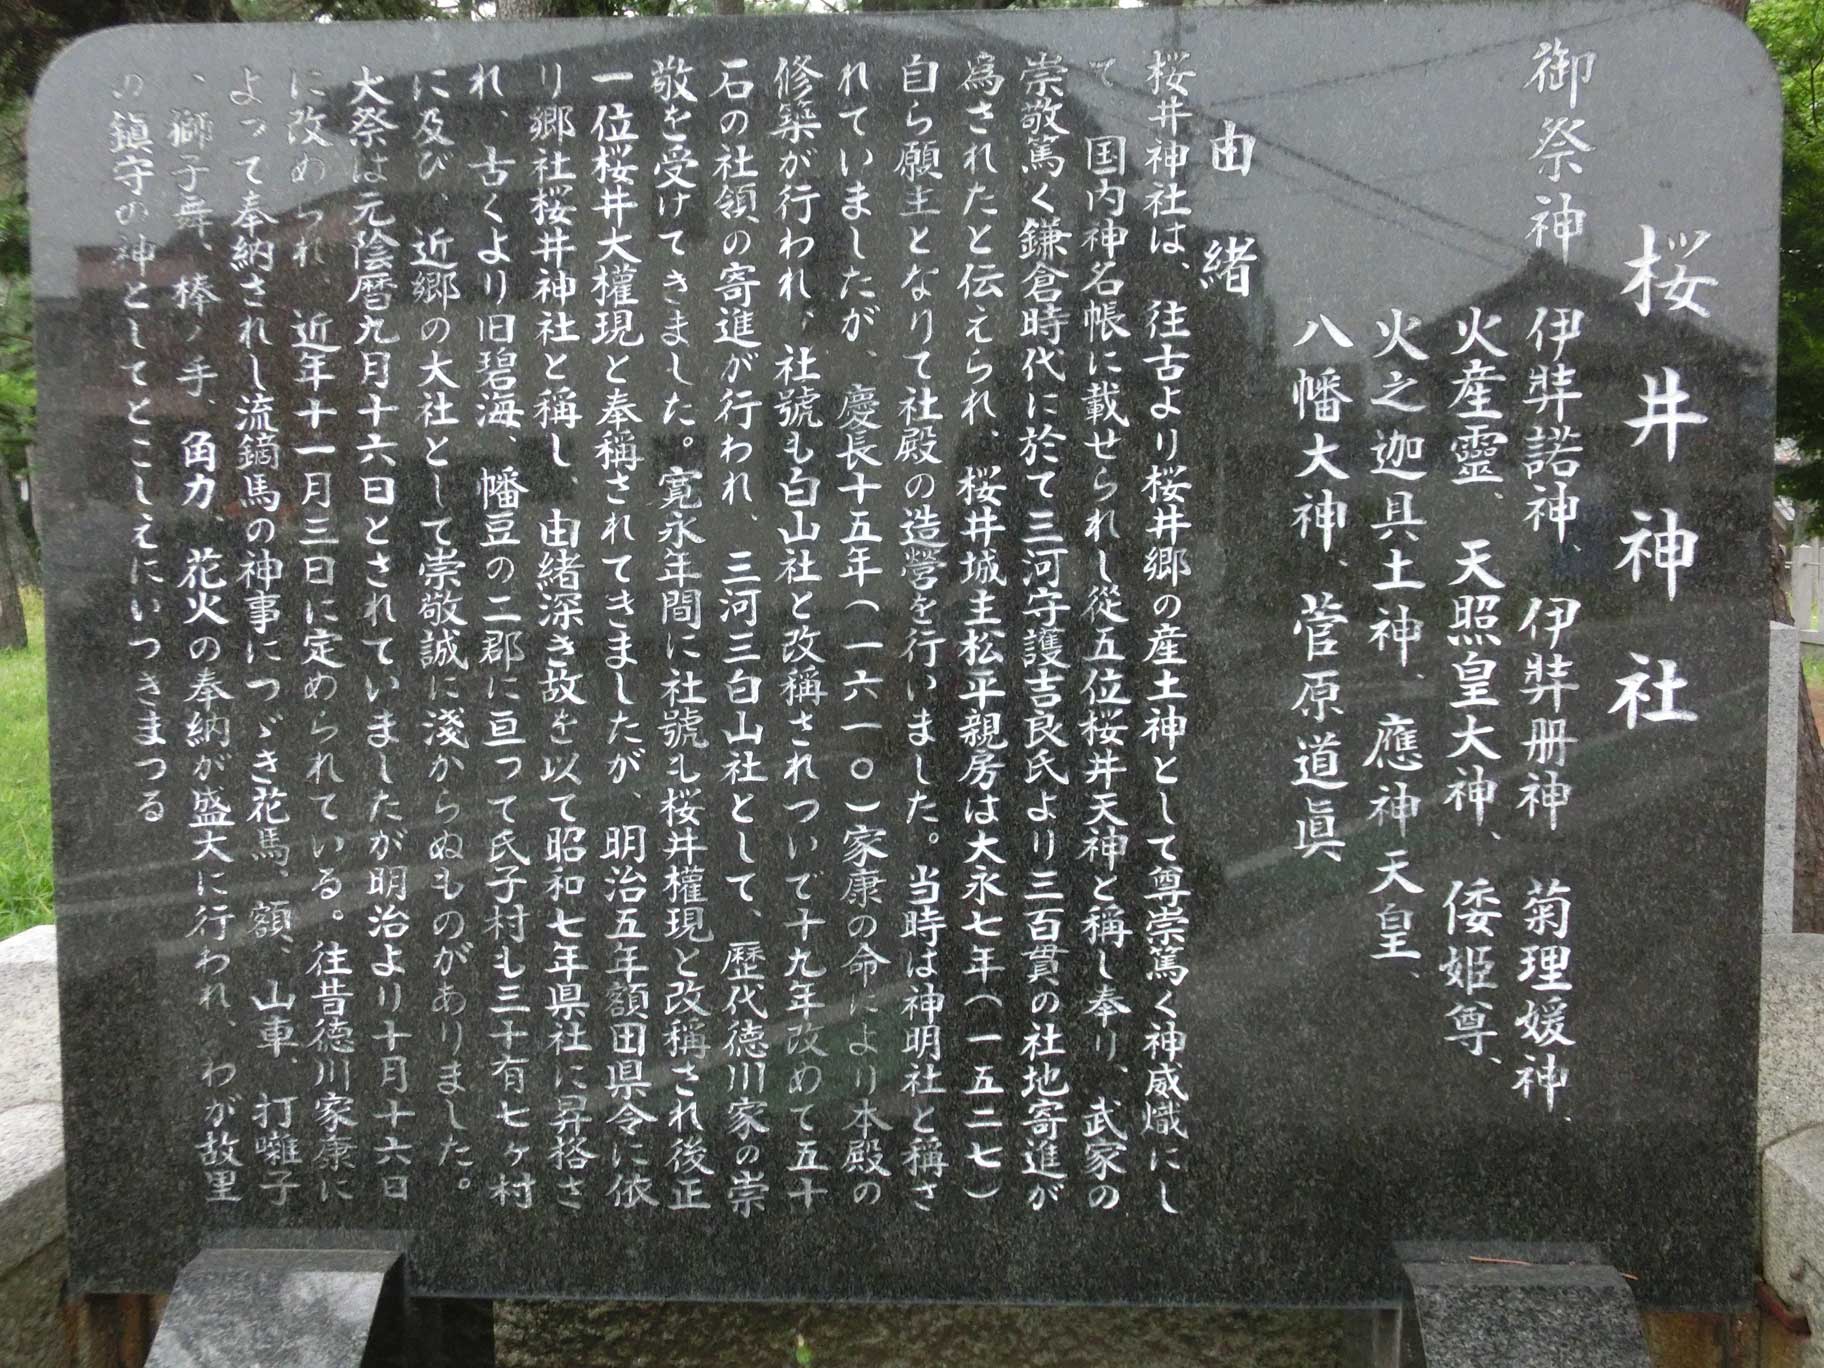 桜井神社
御祭神 伊弉諾神、伊弉册神 菊理媛神、
火産靈、天照皇大神、倭姫尊、
火之迦具土神、應神天皇、
八幡大神、菅原道眞
由緒
桜井神社は、往古より桜井郷の産土神として尊崇篤く神威熾にし
て 国内神名帳に載せられし從五位桜井天神と稱し奉り、武家の
崇敬篤く鎌倉時代に於て三河守護吉良氏より三百貫の社地寄進が
為されたと伝えられ、桜井城主松平親房は大永七年(一五二七)
自ら願主となりて社殿の造營を行いました。当時は神明社と稱さ
れていましたが、慶長十五年(一六一〇)家康の命により本殿の
修築が行われ、社號も白山社と改稱されついで十九年改めて五十
石の社領の寄進が行われ、三河三白山社として、歴代徳川家の崇
敬を受けてきました。寛永年間に社號も桜井權現と改稱され後正
一位桜井大權現と奉稱されてきましたが、明治五年額田県令に依
り郷社桜井神社と稱し、由緒深き故を以て昭和七年県社に昇格さ
れ、古くより旧碧海、幡豆の二郡に亘って氏子村も三十有七ヶ村
に及び、近郷の大社として崇敬誠に淺からぬものがありました。
大祭は元陰暦九月十六日とされていましたが明治より十月十六日
に改められ 近年十一月三日に定められている。往昔徳川家康に
よって奉納されし流鏑馬の神事につゞき花馬、額、山車、打囃子
、獅子舞、棒ノ手、角力、花火の奉納が盛大に行われ、わが故里
の鎮守の神としてとこしえにいつきまつる